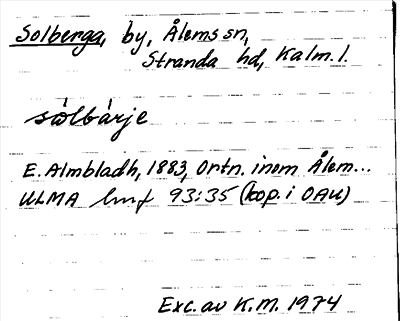 Solberga, by, Ålems sn,
Stranda hd, Kalm. l.
sólbárje
E. Almbladh, 1883, Ortn. inom Ålem...
ULMA 93:35 (kop. i OAU)
Exc. av K.M. 1974